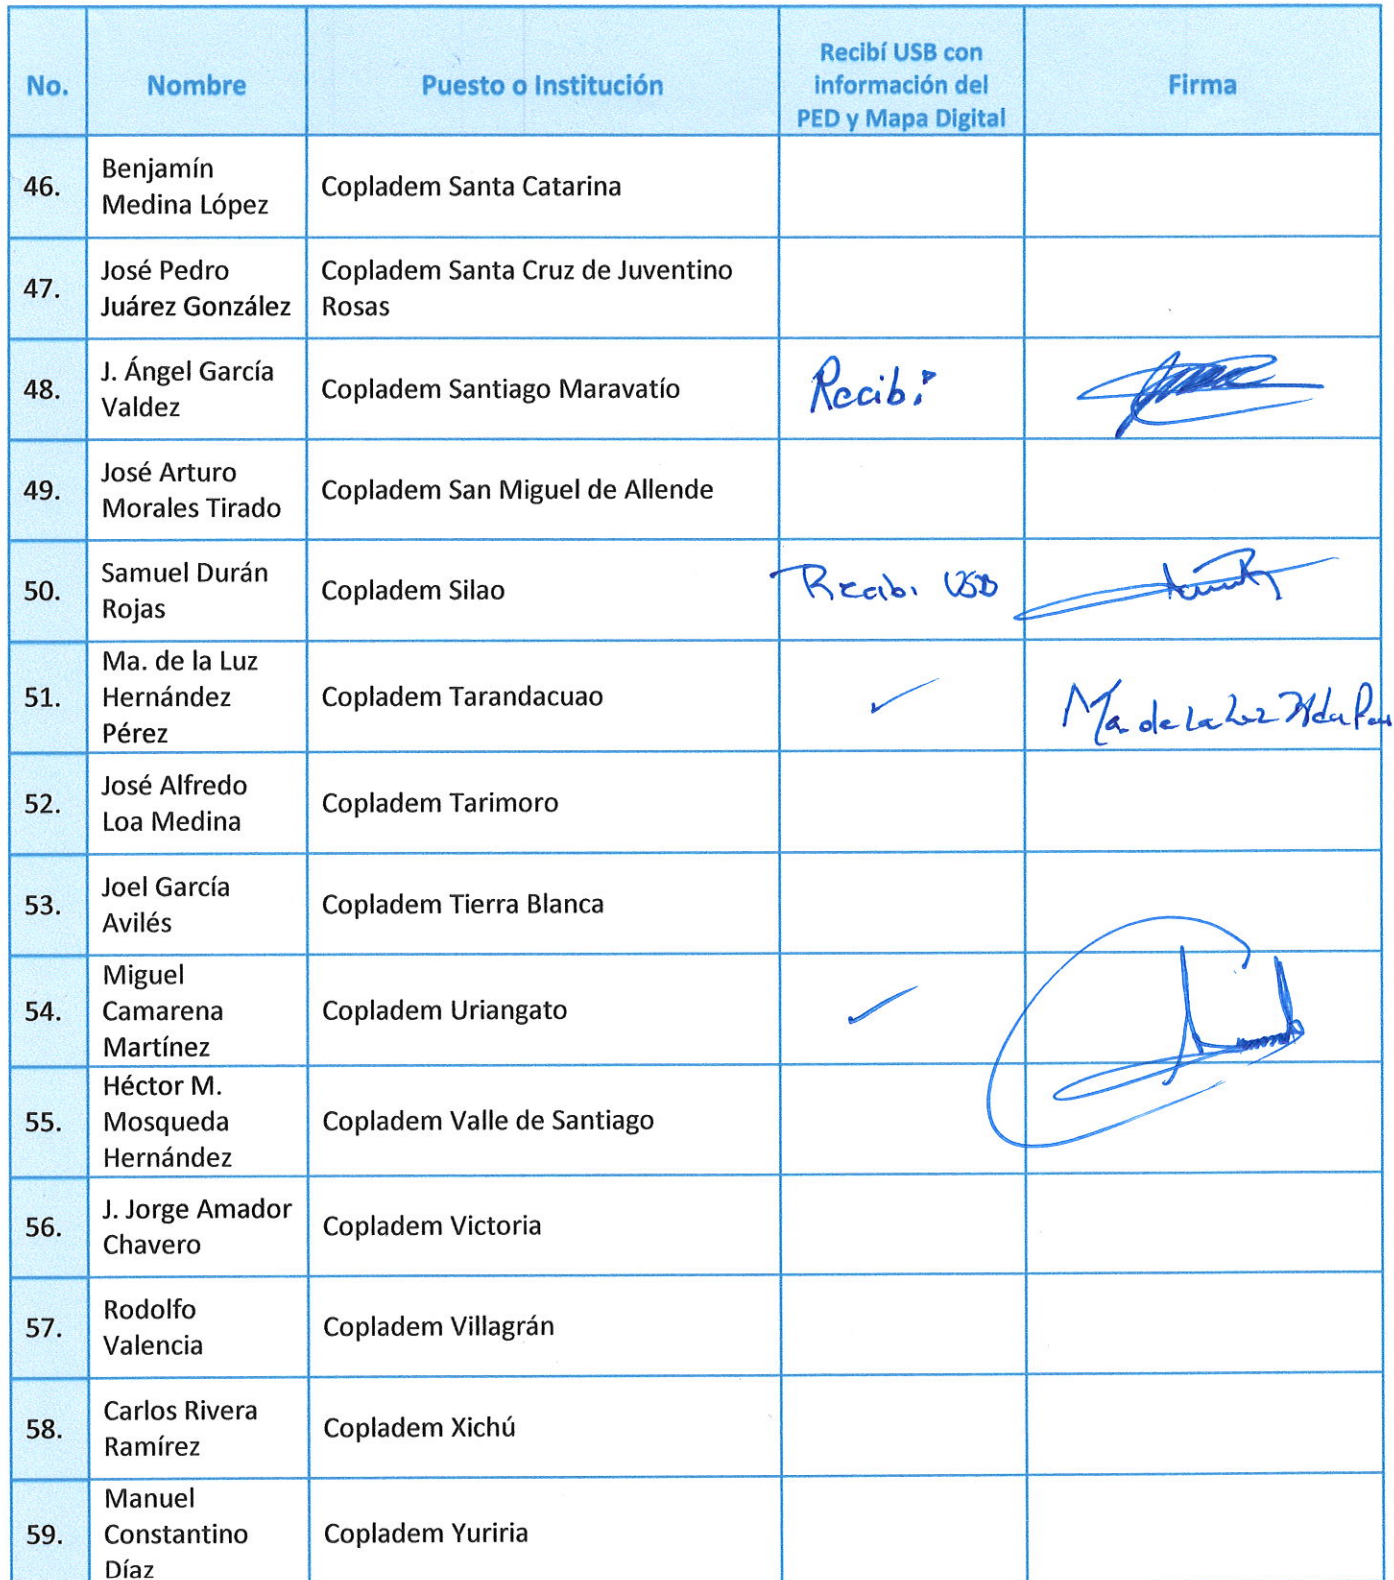 No.
Nombre
Puesto o Institución
Recibí USB con
información del
PED y Mapa Digital
Firma
46.
Benjamín
Medina López
Copladem Santa Catarina
47.
José Pedro
Juárez González
Copladem Santa Cruz de Juventino
Rosas
48.
J. Ángel García
Valdez
Copladem Santiago Maravatío
Recibí
49.
José Arturo
Morales Tirado
Copladem San Miguel de Allende
50.
Samuel Durán
Rojas
Copladem Silao
Recibi USB
51.
Ma. de la Luz
Hernández
Pérez
Copladem Tarandacuao
Ma. de La Luz
52.
José Alfredo
Loa Medina
Copladem Tarimoro
53.
Joel García
Avilés
Copladem Tierra Blanca
54.
Miguel
Camarena
Martínez
Copladem Uriangato
55.
Héctor M.
Mosqueda
Hernández
Copladem Valle de Santiago
56.
J. Jorge Amador
Chavero
Copladem Victoria
57.
Rodolfo
Valencia
Copladem Villagrán
58.
Carlos Rivera
Ramírez
Copladem Xichú
59.
Manuel
Constantino
Díaz
Copladem Yuriria